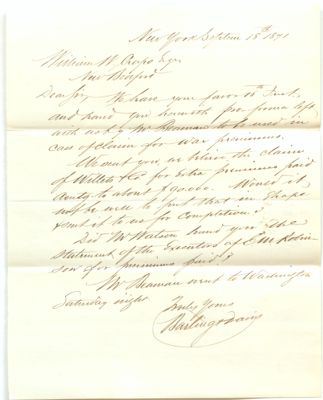 New York Septem 18th 1871
William W. Crapo Esqr
New Bedford
Dear Sir, We have your favor 15th Inst,
and hand you herewith pro forma
of Mr Beaman to be used in
case of claim for war premiums.
We want you, we believe the claim
of Willets & Co for Extra premiums paid
to about $90000. Would it
not be well to put that in shape
& sent it to us for completion?
Did Mr Watson hand you the
statement of the Executors of E M Robin
son for premiums paid?
Mr Beaman went to Washington
Saturday night.
Truly Yours
Barling & Davis